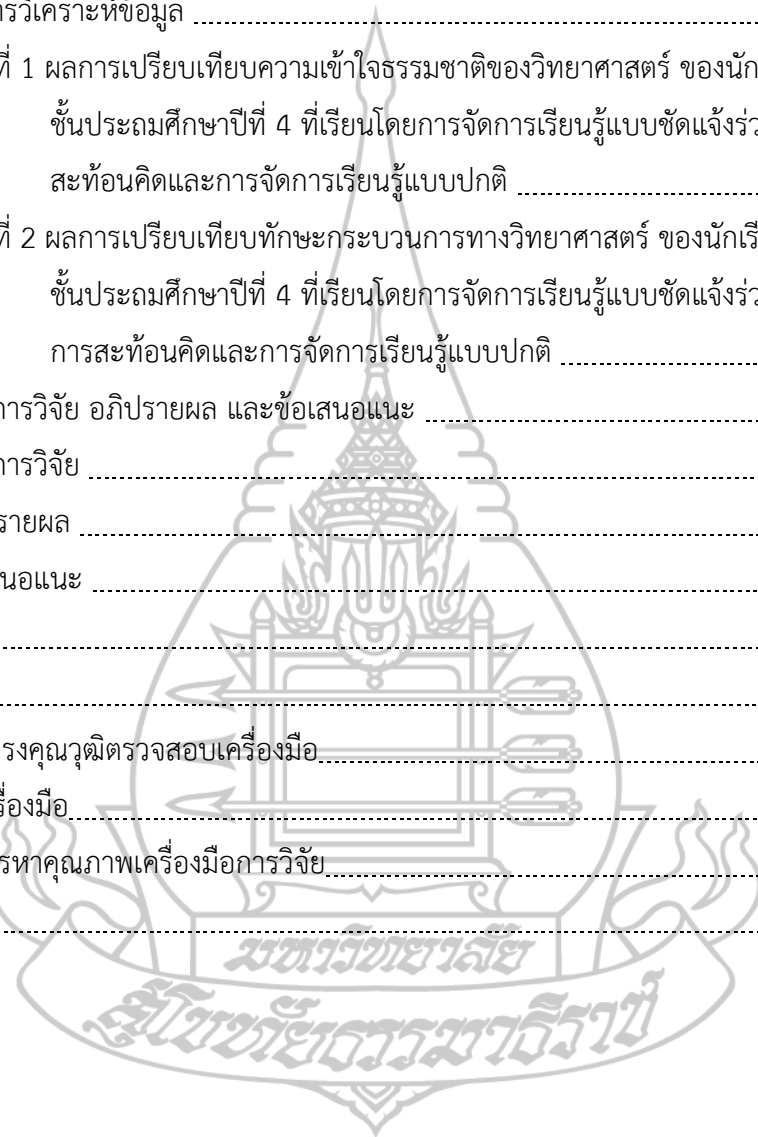 ารวิเคราะห์ข้อมูล
ที่ 1 ผลการเปรียบเทียบความเข้าใจธรรมชาติของวิทยาศาสตร์ ของนัก
ชั้นประถมศึกษาปีที่ 4 ที่เรียนโดยการจัดการเรียนรู้แบบชัดแจ้งร่ว
สะท้อนคิดและการจัดการเรียนรู้แบบปกติ
ที่ 2 ผลการเปรียบเทียบทักษะกระบวนการทางวิทยาศาสตร์ ของนักเรี
ชั้นประถมศึกษาปีที่ 4 ที่เรียนโดยการจัดการเรียนรู้แบบชัดแจ้งร่ว
การสะท้อนคิดและการจัดการเรียนรู้แบบปกติ
การวิจัย อภิปรายผล และข้อเสนอแนะ
การวิจัย
รายผล
นอแนะ
รงคุณวุฒิตรวจสอบเครื่องมือ
รื่องมือ
รหาคุณภาพเครื่องมือการวิจัย
มหาวิทยาลัย
สุโขทัยธรรมาธิราช